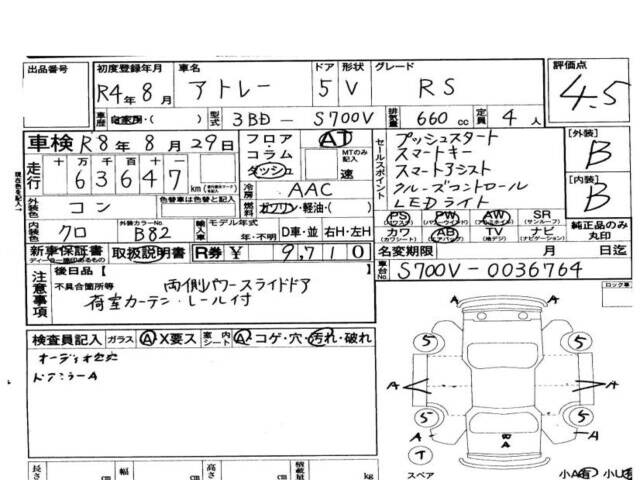 出品番号
初度登録年月 車名 ドア 形状 グレード 評価点
R4年8月 アトレー 5 V RS 4.5
車歴 自家用・( ) 型式 3BD－S700V 排気量 660cc 定員 4人
車検 R8年8月29日
フロア・ AT
コラム MTのみ記入
ダッシュ 速
セールスポイント
プッシュスタート
スマートキー
スマートアシスト
クルーズコントロール
LEDライト
[外装] B
[内装] B
走行 十 万 千 百 十 一
63647 km
冷房 AAC
外装色 コン 色替車は色替と記入
燃料 ガソリン・軽油・( )
内装色 クロ 外装カラーNo. B82
輸入車 モデル年式 年・不明 D車・並 右H・左H
PS (パワステ) PW (パワーウインドウ) AW (アルミホイル) SR (サンルーフ)
カワ (カワシート) AB (エアバック) TV (地デジ) ナビ (ナビゲーション)
純正品のみ丸印
新車保証書 取扱説明書 R券 ¥ 9,710
名変期限 月 日迄
車台No. S700V－0036764
注意事項
後日品【 】
不具合箇所等 両側パワースライドドア
荷室カーテン・レール付
検査員記入 ガラス A・X要ス 室内シート A・コゲ・穴・汚れ・破れ
ドアミラーA
ロック車
A A
5 5
A A
5 5
A A
A
T
スペア
小A有 小U有
長さ cm 幅 cm 高さ cm 積載量 kg
現在色を記入